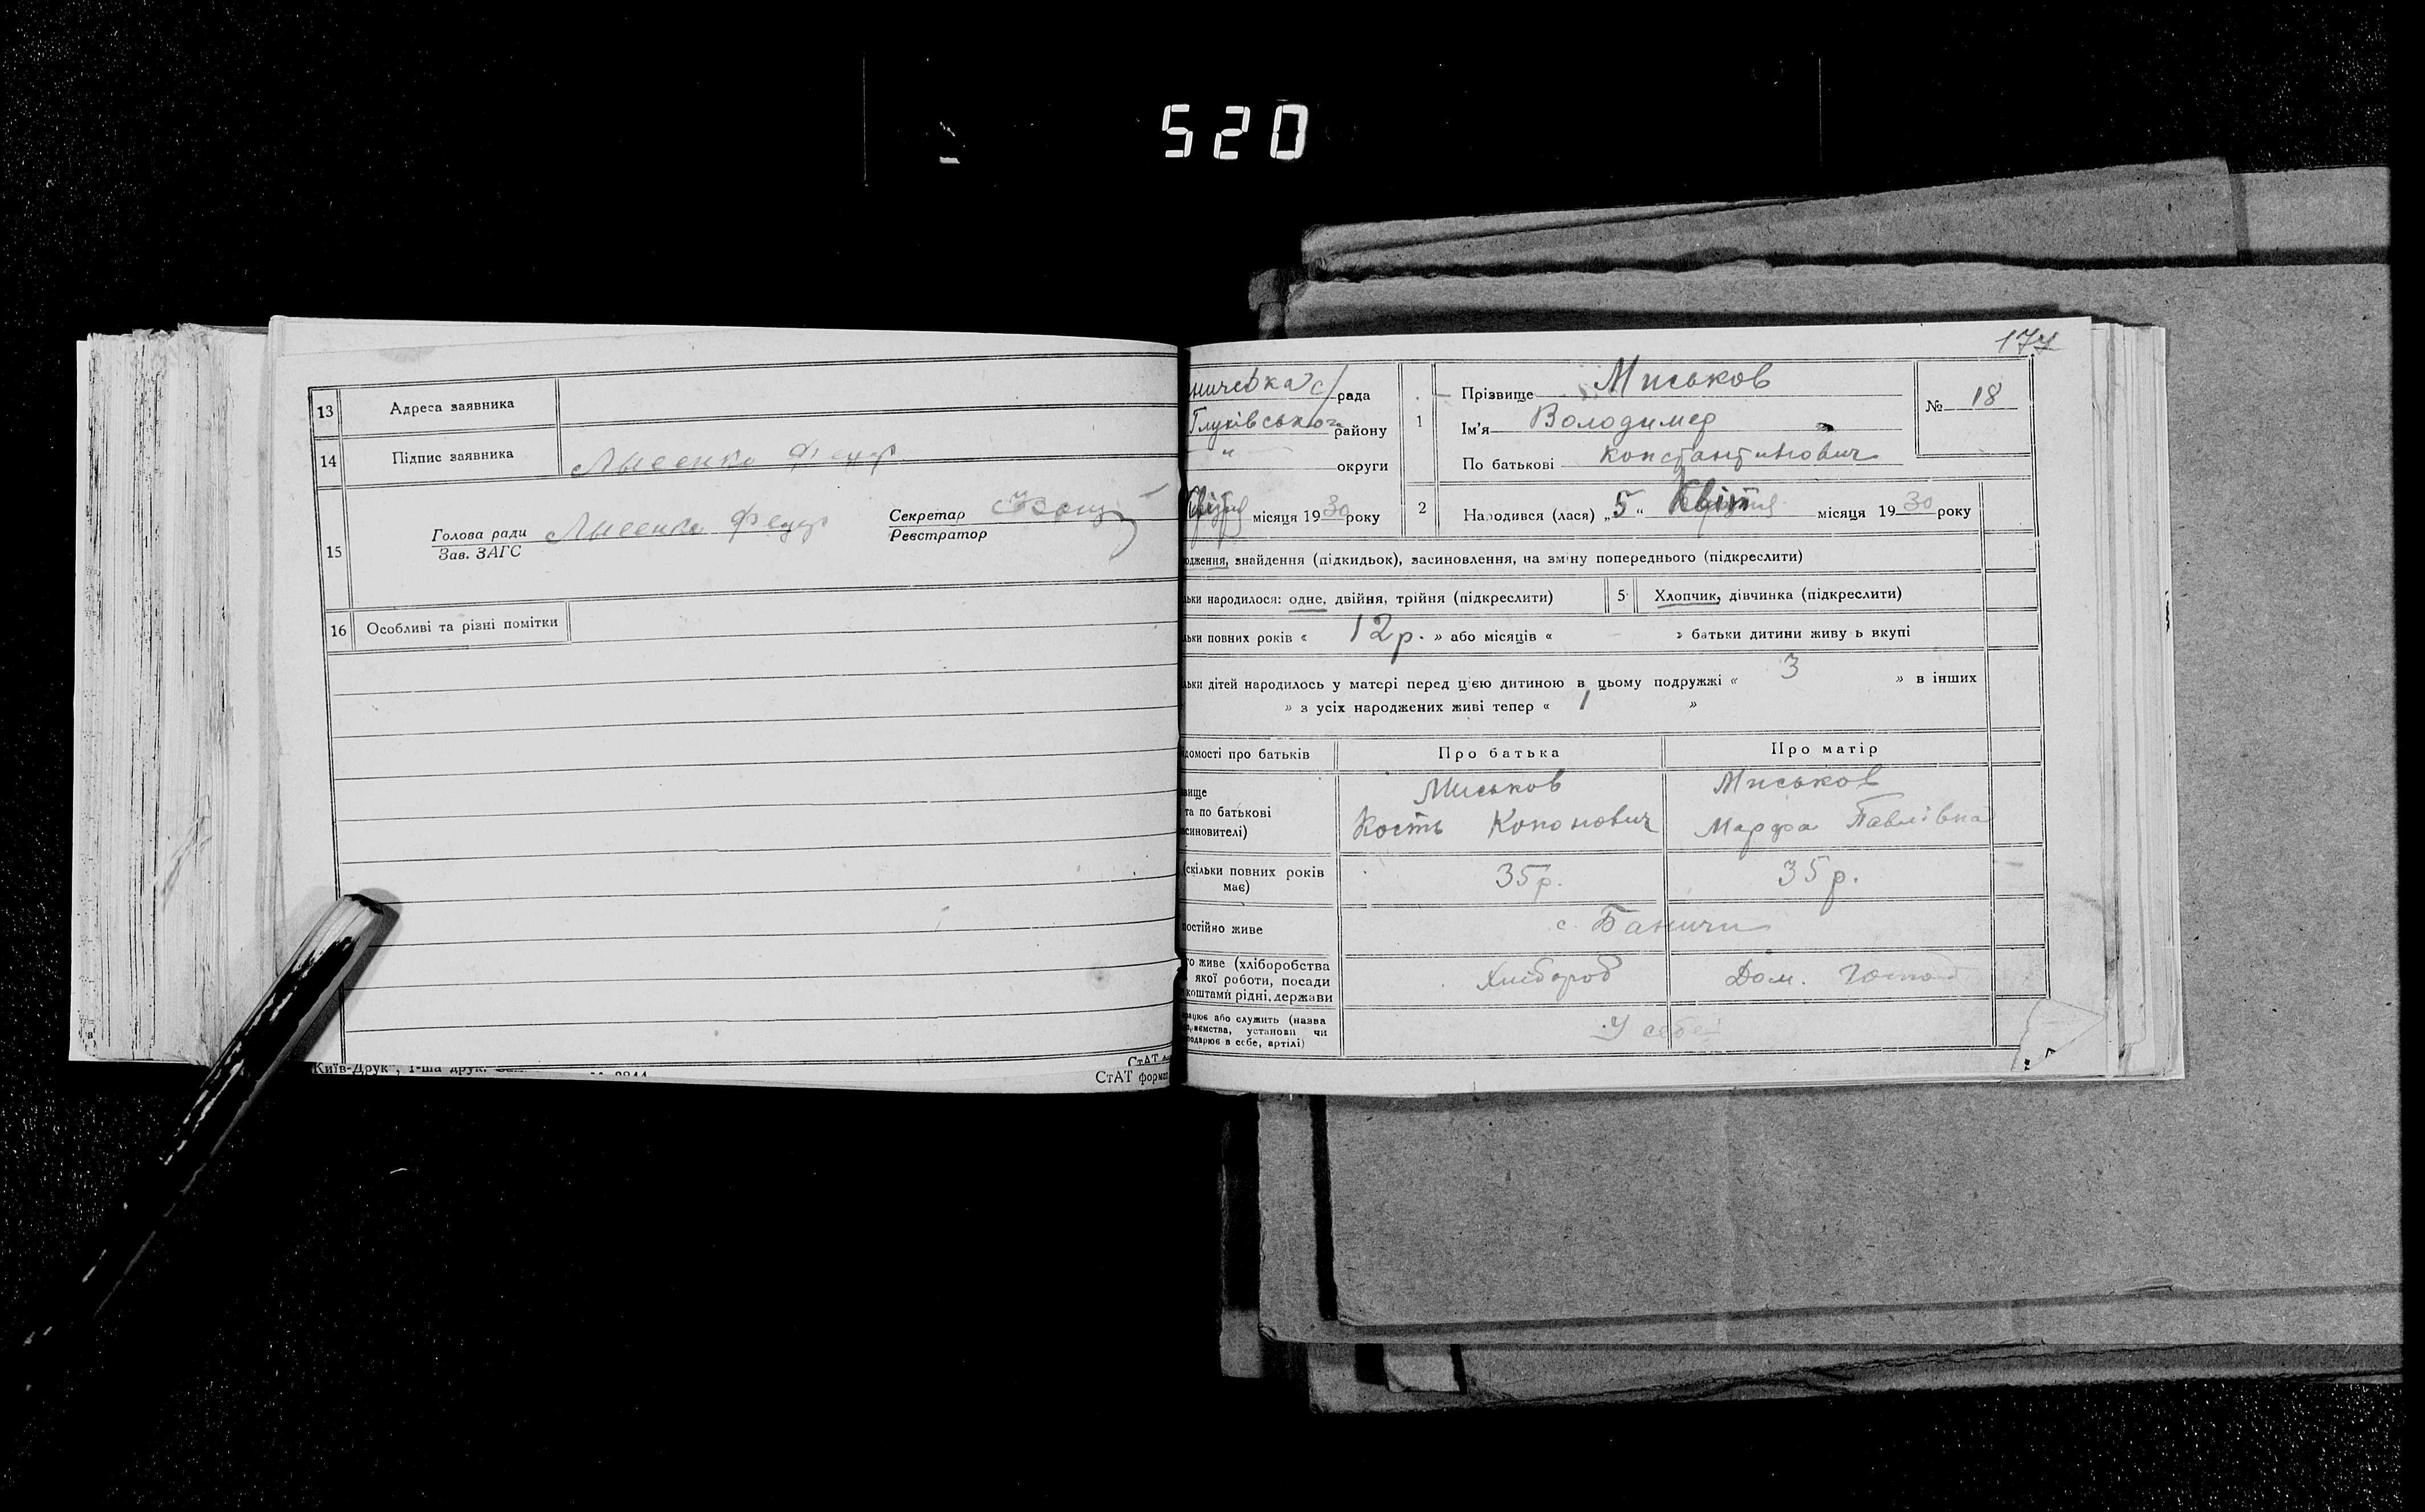 520
13 Адреса заявника
14 Підпис заявника Лисенко Федір
15 Голова ради Лисенко Федір Секретар
Зав. ЗАГС Реєстратор
16 Особливі та різні помітки
СтАТ
СтАТ формат
Київ-Друк", 1-ша друк.
177
ничевка с/рада
Глухівського району
" округи
Квітня місяця 1930 року
1 Прізвище Миськов
Ім'я Володимер
По батькові Константинович
№ 18
2 Народився (лася) „5“ Квітня місяця 1930 року
одження, знайдення (підкидьок), засиновлення, на зміну попереднього (підкреслити)
льки народилося: одне, двійня, трійня (підкреслити) 5 Хлопчик, дівчинка (підкреслити)
льки повних років « 12р. » або місяців « – » батьки дитини живу ь вкупі
льки дітей народилось у матері перед цією дитиною в цьому подружжі « 3 » в інших
» з усіх народжених живі тепер « 1 »
ідомості про батьків Про батька Про матір
звище
та по батькові
синовителі)
Миськов
Кость Кононович
Миськов
Марфа Павлівна
(скільки повних років має) 35р. 35р.
постійно живе с. Баничи
го живе (хліборобства
якої роботи, посади
коштами рідні, держави
Хлібороб Дом. Господ
рацює або служить (назва
ємства, установи чи
подарює в себе, артілі)
У себе